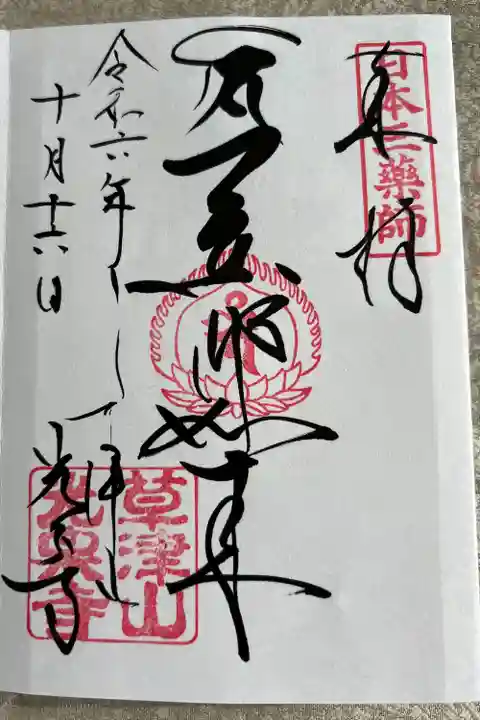 日本三薬師
奉拝
薬師如来
令和六年
十月十六日
光泉寺
草津山
光泉寺